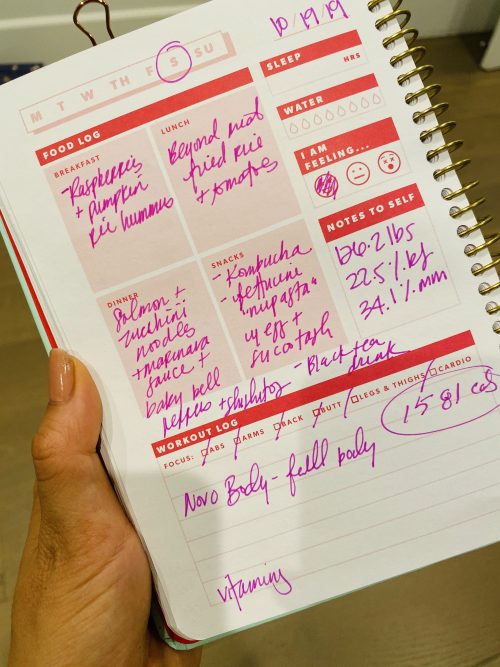 10/19/19
M T W TH F S SU
SLEEP
HRS
WATER
I AM FEELING...
NOTES TO SELF
126.2 lbs
22.5% bf
34.1% mm
FOOD LOG
BREAKFAST
- Raspberries
+ pumpkin
pie hummus
LUNCH
Beyond meat
fried rice
+ tomatoes
DINNER
Salmon +
zucchini
noodles
+ marinara
sauce +
baby bell
peppers + shishitos
SNACKS
- Kombucha
- fettucine
"nupasta"
w/ egg +
succotash
- Black tea
drink
WORKOUT LOG
FOCUS: ABS ARMS BACK BUTT LEGS & THIGHS CARDIO
1581 cal
Novo Body - full body
vitamins